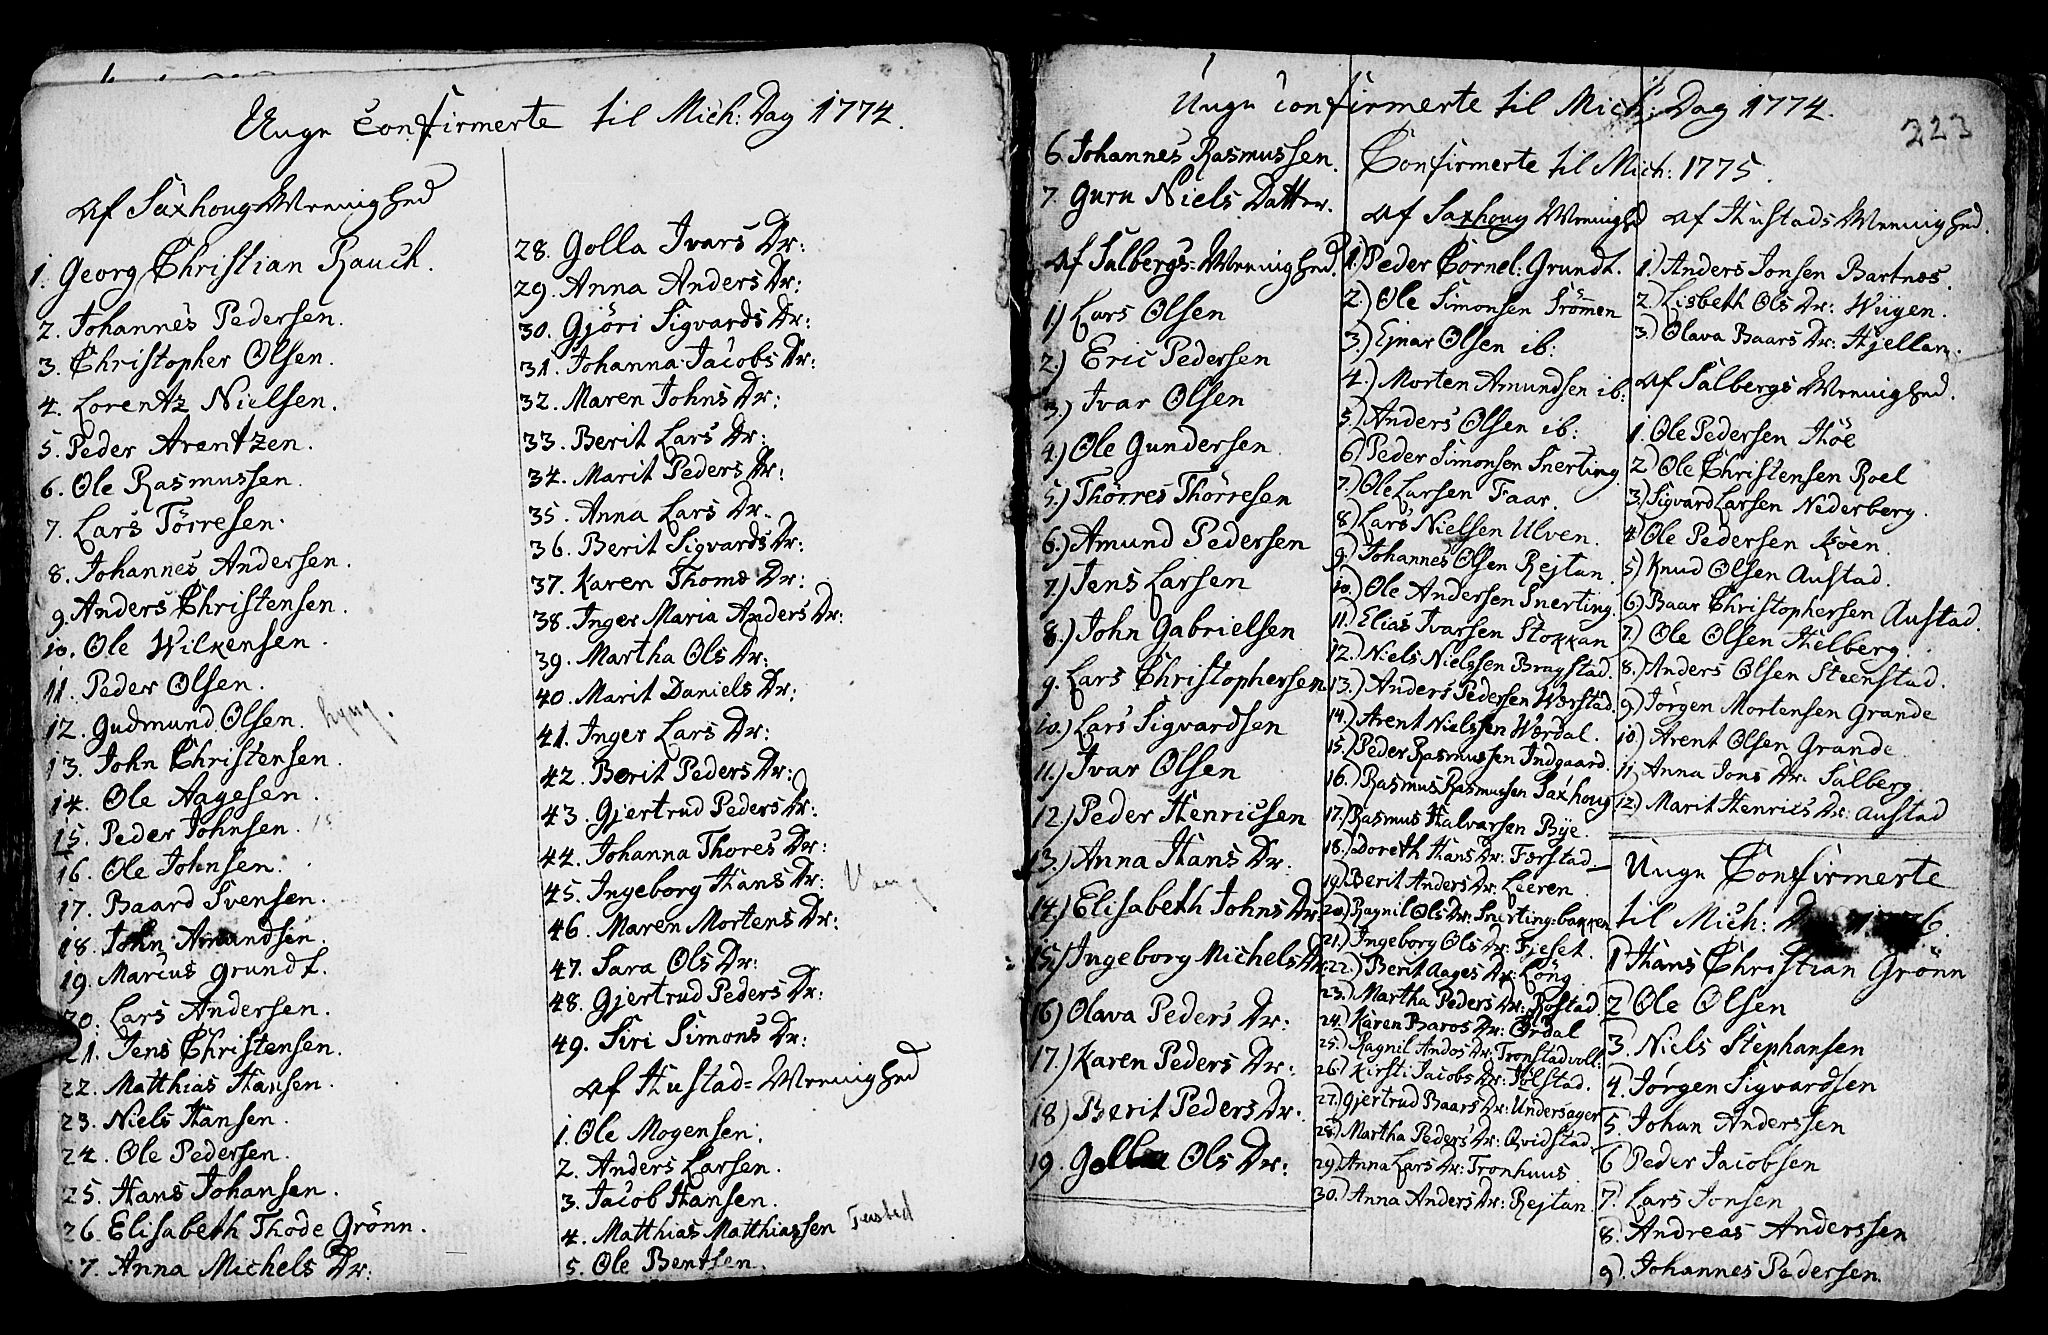 Unge Confirmerte til Mich: Dag 1774.
Af Saxhoug Mænnighed
1. Georg Christian Rauch.
2. Johannes Pedersen.
3. Christopher Olsen.
4. Lorentz Nielsen.
5. Peder Arentzen.
6. Ole Rasmussen.
7. Lars Törresen.
8. Johannes Andersen.
9. Anders Christensen.
10. Ole Wilkensen.
11. Peder Olsen.
12. Gudmund Olsen. lyng.
13. John Christensen.
14. Ole Aagesen.
15. Peder Johnsen. 15
16. Ole Johnsen.
17. Baard Svensen.
18. John Amundsen.
19. Marcus Grundt.
20. Lars Andersen.
21. Jens Christensen.
22. Matthias Hansen.
23. Niels Hansen.
24. Ole Pedersen.
25. Hans Johansen.
26. Elisabeth Thode Grönn.
27. Anna Michels Dr:
28. Golla Ivars Dr:
29. Anna Anders Dr:
30. Gjöri Sigvards Dr:
31. Johanna Jacobs Dr:
32. Maren Johns Dr:
33. Berit Lars Dr:
34. Marit Peders Dr:
35. Anna Lars Dr.
36. Berit Sigvards Dr:
37. Karen Thomæ Dr:
38. Inger Maria Anders Dr:
39. Martha Ols Dr:
40. Marit Daniels Dr:
41. Inger Lars Dr:
42. Berit Peders Dr:
43. Gjertrud Peders Dr:
44. Johanna Thores Dr:
45. Ingeborg Hans Dr: Vang
46. Maren Mortens Dr:
47. Sara Ols Dr:
48. Gjertrud Peders Dr:
49. Siri Simons Dr:
Af Hustad=Mænnighed
1. Ole Mogensen.
2. Anders Larsen.
3. Jacob Hansen.
4. Matthias Matthiassen
5. Ole Bentsen.
Unge Confirmerte til Mich: Dag 1774.
223
6. Johannes Rasmussen.
7. Guru Niels Datter.
Af Salbergs=Mænnighed.
1.) Lars Olsen
2.) Eric Pedersen
3.) Ivar Olsen
4.) Ole Gundersen
5.) Thörres Thörresen
6.) Amund Pedersen
7.) Jens Larsen
8.) John Gabrielsen
9. Lars Christophersen
10.) Lars Sigvardsen
11.) Ivar Olsen
12.) Peder Henricsen
13.) Anna Hans Dr.
14.) Elisabeth Johns Dr.
15.) Ingeborg Michels Dr.
16) Olava Peders Dr:
17.) Karen Peders Dr:
18) Berit Peders Dr.
19. Golla Ols Dr:
Confirmerte til Mich: 1775.
Af Saxhoug Mænnighed
1.) Peder Cornel: Grundt.
2.) Ole Simonsen Srömen
3.) Ejnar Olsen ib:
4.) Morten Amundsen ib:
5.) Anders Olsen ib:
6.) Peder Simonsen Snerting
7.) Ole Larsen Faar.
8) Lars Nielsen Ulven.
9) Johannes Olsen Rejtan.
10.) Ole Andersen Snerting.
11.) Elias Ivarsen Stokkan
12.) Niels Nielssen Bragstad.
13.) Anders Pedersen Wærstad.
14.) Arent Nielssen Wærdal.
15.) Peder Rasmussen Indgaard.
16.) Rasmus Rasmussen Saxhoug
17.) Rasmus Halvarsen Bÿe.
18.) Doreth Hans Dr: Færstad
19.) Berit Anders Dr: Leeren.
20.) Ragnil Ols Dr: Snerting:bakken
21.) Ingeborg Ols Dr: Fjeset.
22.) Berit Aages Dr: Löng
23.) Martha Peders Dr: Rostad.
24.) Karen Baros Dr: Ordal
25.) Ragnil Andos Dr: Tronstadvolt:
26.) Kirsti Jacobs Dr: Hölstad.
27.) Gjertrud Baars Dr: Undersager
28.) Martha Peders Dr: Qvidstad
29.) Anna Lars Dr: Tronhuus
30.) Anna Anders Dr: Rejtan
Af Hustads Mænnighed.
1.) Anders Jonsen Bartnæs.
2.) Lisbeth Ols Dr: Wiigen.
3.) Olava Baars Dr: Hjellan.
Af Salbergs Mænnighed.
1. Ole Pedersen Höe
2) Ole Christensen Roel
3) Sigvard Larsen Nederberg.
4) Ole Pedersen Köen.
5) Knud Olsen Austad.
6) Baar Christophersen Austad.
7.) Ole Olsen Helberg.
8.) Anders Olsen Steenstad.
9.) Jörgen Mortensen Grande
10) Arent Olsen Grande
11) Anna Jons Dr. Salberg.
12) Marit Henrics Dr: Austad
Unge Confirmerte
til Mich:
1 Hans Christian Grönn
2 Ole Olsen
3. Niels Stephansen
4. Jörgen Sigvardsen
5. Johan Anderssen
6 Peder Jacobsen
7. Lars Jonsen
8. Andreas Anderssen
9). Johannes Pedersen.